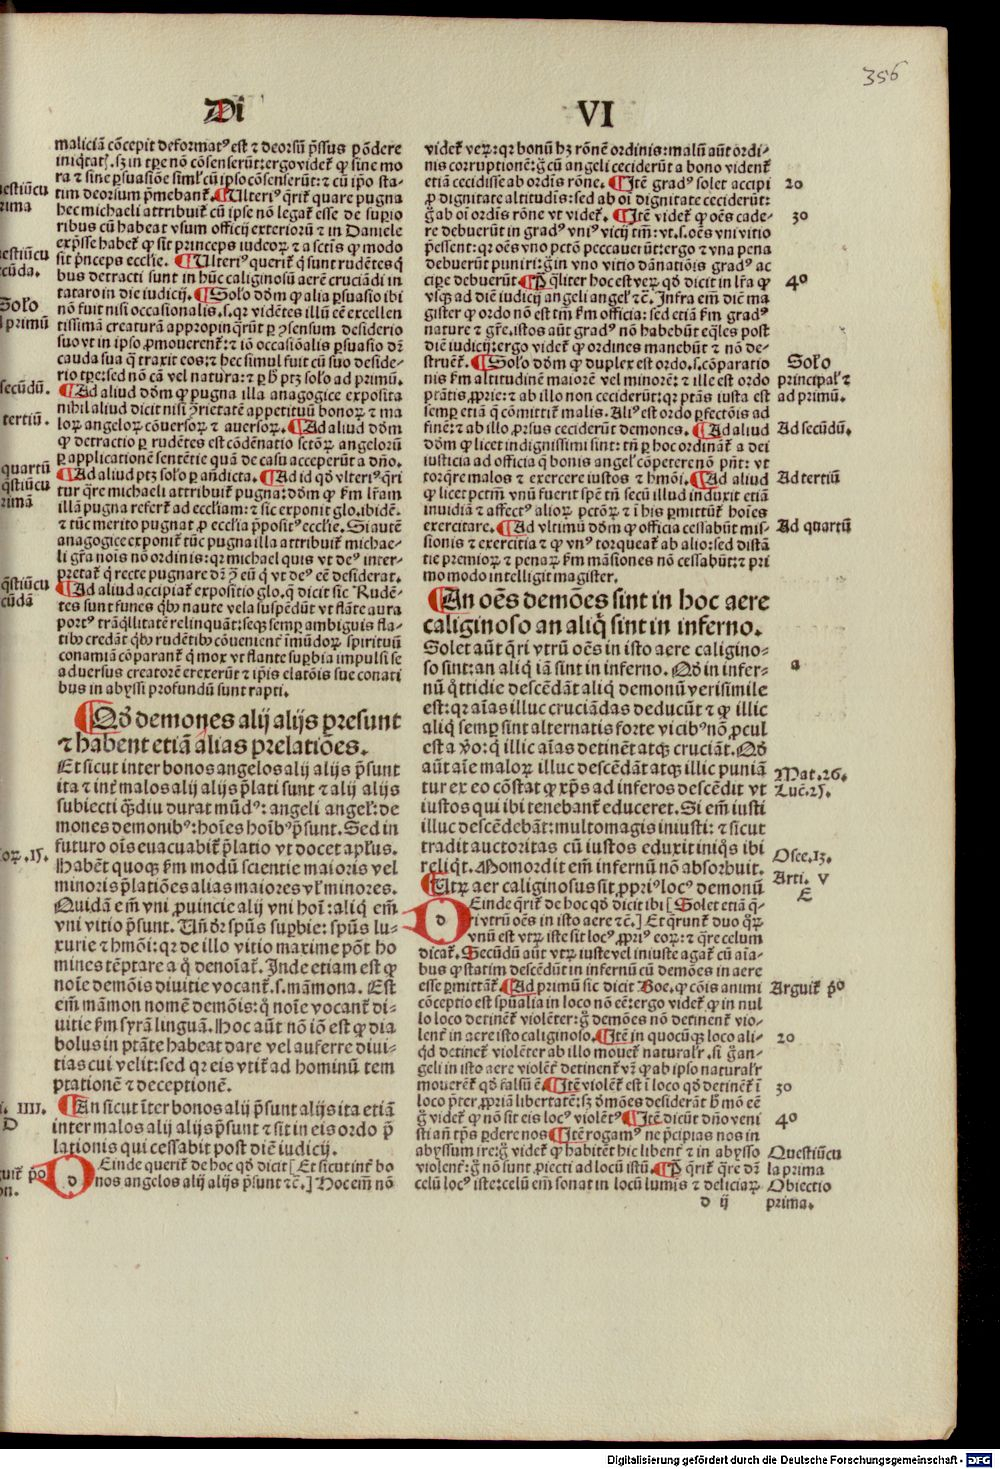 356
Di
VI
maliciã cõcepit deformatꝰ est ⁊ deorsũ p̃ssus põdere
iniqtatꝭ. sꝫ in tp̃e nõ cõsenserũt: ergo videt̃ ꝙ sine mo
ra ⁊ sine ꝑsuasiõe siml̃ cũ ip̃o cõsenserũt: ⁊ cũ ip̃o sta-
tim deorsium p̃mebant̃. ¶Ulteriꝰ q̃rit̃ quare pugna
hec michaeli attribuit̃ cũ ipse nõ legat̃ esse de suꝑio
ribus cũ habeat vsum officij exteriorũ ⁊ in Daniele
exp̃sse habet̃ ꝙ sit princeps iudeoꝝ ⁊ a sctis ꝙ modo
sit p̃nceps eccl̃ie. ¶Ulteriꝰ querit̃ q̃ sunt rudẽtes q̃
bus detracti sunt in hũc caliginosũ aerẽ cruciãdi in
tataro in die iudicij. ¶Solo dõm ꝙ alia ꝑsuasio ibi
nõ fuit nisi occasionalis .s. qꝛ vidẽtes illũ eẽ excellen
tissimã creaturã appropinq̃rũt ꝑ ꝯsensum desiderio
suo vt in ipso ꝓmouerent̃: ⁊ iõ occasiõalis ꝑsuasio dõ
cauda sua q̃ traxit eos: ⁊ hec simul fuit cũ suo deside-
rio tp̃e: sed nõ cã vel natura: ⁊ ꝑ ħ ptꝫ solo ad primũ.
¶Ad aliud dõm ꝙ pugna illa anagogice exposita
nihil aliud dicit nisi ꝯrietatẽ appetituũ bonoꝝ ⁊ ma
loꝝ angeloꝝ cõuersoꝝ ⁊ auersoꝝ. ¶Ad aliud dõm
ꝙ detractio ꝑ rudẽtes est cõdẽnatio sctõꝝ angelorũ
ꝑ applicationẽ sentẽtie quã de casu acceperũt a dño.
¶Ad aliud ptꝫ solo ꝑ añdicta. ¶Ad id qõ vlteriꝰ q̃ri
tur q̃re michaeli attribuit̃ pugna: dõm ꝙ km̃ lr̃am
illã pugna refert̃ ad eccl̃iam: ⁊ sic exponit glo. ibidẽ.
⁊ tũc merito pugnat ꝓ eccl̃ia p̃positꝰ eccl̃ie. Si autẽ
anagogice exponit̃ tũc pugna illa attribuit̃ michae-
li gr̃a noĩs nõ ordinis: qꝛ michael quis vt deꝰ inter-
pretat̃ q̃ recte pugnare dꝫ ꝯ̃ eũ q̃ vt deꝰ eẽ desiderat.
¶Ad aliud accipiat̃ expositio glo. q̃ dicit sic Rudẽ-
tes sunt funes qbꝰ naute vela suspẽdũt vt flãte aura
portꝰ trãq̃llitatẽ relinquãt: seqꝫ semꝑ ambiguis fla-
tibꝰ credãt qbꝰ rudẽtibꝰ cõuenient̃ ĩmũdoꝝ spirituũ
conamiã cõparant̃ q̃ mox vt flante suꝑbia impulsi se
aduersus creatorẽ erexerũt ⁊ ip̃is elatõis sue conati
bus in abyssi profundũ sunt rapti.
¶Qõ demones alij alijs presunt
⁊ habent etiã alias prelatiões.
Et sicut inter bonos angelos alij alijs p̃sunt
ita ⁊ int̃ malos alij alijs p̃lati sunt ⁊ alij alijs
subiecti qm̃diu durat mũdꝰ: angeli angel̃: de
mones demonibꝰ: hoĩes hoĩbꝰ p̃sunt. Sed in
futuro oĩs euacuabit̃ p̃latio vt docet apl̃us.
Habẽt quoqꝫ km̃ modũ scientie maioris vel
minoris p̃latiões alias maiores vl̃ minores.
Quidã em̃ vni ꝓuincie alij vni hoĩ: aliq̃ em̃
vni vitio p̃sunt. Uñ dr̃ spũs suꝑbie: spũs lu-
xurie ⁊ hmõi: qꝛ de illo vitio maxime põt ho
mines tẽptare a q̃ denoĩat̃. Inde etiam est ꝙ
noĩe demõis diuitie vocant̃ .s. mãmona. Est
em̃ mãmon nomẽ demõis: q̃ noĩe vocant̃ di-
uitie km̃ syrã linguã. Hoc aũt nõ iõ est ꝙ dia
bolus in ptãte habeat dare vel auferre diui-
tias cui velit: sed qꝛ eis vtit̃ ad hominũ tem
ptationẽ ⁊ deceptionẽ.
¶An sicut ĩter bonos alij p̃sunt alijs ita etiã
inter malos alij alijs p̃sunt ⁊ sit in eis ordo p̃
lationis qui cessabit post diẽ iudicij.
DEinde querit̃ de hoc qõ dicit [Et sicut int̃ bo
nos angelos alij alijs p̃sunt ⁊cẽ.] Hoc em̃ nõ
videt̃ veꝝ: qꝛ bonũ hꝫ rõnẽ ordinis: malũ aũt ordi-
nis corruptionẽ: g̃ cũ angeli ceciderũt a bono vident̃
etiã cecidisse ab ordis rõne. ¶Itẽ gradꝰ solet accipi
ꝓ dignitate altitudĩs: sed ab oĩ dignitate ceciderũt:
g̃ ab oĩ ordĩs rõne vt videt̃. ¶Itẽ videt̃ ꝙ oẽs cade-
re debuerũt in gradꝰ vniꝰ vicij tm̃: vt .s. oẽs vni vitio
p̃essent: qꝛ oẽs vno pctõ peccauerũt: ergo ⁊ vna pena
debuerũt puniri: g̃ in vno vitio dãnatiõis gradꝰ ac
cipe debuerũt ¶P̃. q̃liter hoc est veꝝ qõ dicit in lr̃a ꝙ
vsqꝫ ad diẽ iudicij angeli angel̃ ⁊cẽ. Infra em̃ diẽ ma
gister ꝙ ordo nõ est tm̃ km̃ officia: sed etiã km̃ gradꝰ
nature ⁊ gr̃e. istos aũt gradꝰ nõ habebũt eq̃les post
diẽ iudicij: ergo videt̃ ꝙ ordines manebũt ⁊ nõ de-
struẽt̃. ¶Solo dõm ꝙ duplex est ordo .s. cõparatio
nis km̃ altitudinẽ maiorẽ vel minorẽ: ⁊ ille est ordo
ptãtis ꝓprie: ⁊ ab illo non ceciderũt: qꝛ ptãs iusta est
semꝑ etiã q̃ cõmittit̃ malis. Aliꝰ est ordo ꝑfectõis ad
finẽ: ⁊ ab illo ꝓrsus ceciderũt demones. ¶Ad aliud
dõm ꝙ licet indignissimi sint: tñ ꝑ hoc ordinãt̃ a dei
iusticia ad officia q̃ bonis angel̃ cõpetere nõ pñt: vt
torq̃re malos ⁊ exercere iustos ⁊ hmõi. ¶Ad aliud
ꝙ licet pctm̃ vnũ fuerit spẽ tñ secũ illud induxit etiã
inuidiã ⁊ affectꝰ alioꝝ pctõꝝ ⁊ ĩ his ꝑmittũt̃ hoĩes
exercitare. ¶Ad vltimũ dõm ꝙ officia cessabũt mis-
sionis ⁊ exercitia ⁊ ꝙ vnꝰ torqueat̃ ab alio: sed distã
tie premioꝝ ⁊ penaꝝ km̃ mãsiones nõ cessabũt: ⁊ pri
mo modo intelligit magister.
¶An oẽs demões sint in hoc aere
caliginoso an aliq̃ sint in inferno.
Solet aũt q̃ri vtrũ oẽs in isto aere caligino-
so sint: an aliq̃ iã sint in inferno. Qõ in infer-
nũ q̃ttidie descẽdãt aliq̃ demonũ verisimile
est: qꝛ aĩas illuc cruciãdas deducũt ⁊ ꝙ illic
aliq̃ semꝑ sint alternatis forte vicibꝰ nõ ꝓcul
est a ṽo: q̃ illic aĩas detinẽt atqꝫ cruciãt. Qõ
aũt aĩe maloꝝ illuc descẽdãt atqꝫ illic puniã
tur ex eo cõstat ꝙ xp̃s ad inferos descẽdit vt
iustos qui ibi tenebant̃ educeret. Si em̃ iusti
illuc descẽdebãt: multomagis iniusti: ⁊ sicut
tradit auctoritas cũ iustos eduxit iniq̃s ibi
reliq̃t. Momordit em̃ infernũ nõ absorbuit.
¶Utꝝ aer caliginosus sit ꝓpriꝰ locꝰ demonũ
DEinde q̃rit̃ de hoc qõ dicit ibi [Solet etiã q̃-
ri vtrũ oẽs in isto aere ⁊cẽ.] Et q̃runt̃ duo q̃ꝝ
vnũ est vtꝝ iste sit locꝰ ꝓpriꝰ eoꝝ: ⁊ q̃re celum
dicat̃. Secũdũ aũt vtꝝ iuste vel iniuste agat̃ cũ aĩa-
bus ꝙ statim descẽdũt in infernũ cũ demões in aere
esse ꝑmittãt̃. ¶Ad primũ sic dicit Boe. ꝙ cõis animi
cõceptio est sp̃ualia in loco nõ eẽ: ergo videt̃ ꝙ in nul
lo loco detinent̃ violẽter: g̃ demões nõ detinent̃ vio-
lent̃ in aere isto caliginoso. ¶Itẽ in quocũqꝫ loco ali-
q̃d detinet̃ violẽter ab illo mouet̃ naturalr̃. si g̃ an-
geli in isto aere violẽt̃ detinent̃ vr̃ ꝙ ab ipso naturalr̃
mouerẽt̃ qõ falsũ ẽ. ¶Itẽ violẽt̃ est ĩ loco qõ detinet̃ ĩ
loco p̃ter ꝓpriã libertatẽ: sꝫ dõmões desiderãt ħ mõ eẽ
g̃ videt̃ ꝙ nõ sit eis locꝰ violẽtꝰ ¶Itẽ dicũt dño veni
sti añ tp̃s ꝑdere nos ¶Itẽ rogamꝰ ne p̃cipias nos in
abyssum ire: g̃ videt̃ ꝙ habitẽt hic libent̃ ⁊ in abysso
violent̃: g̃ nõ sunt ꝓiecti ad locũ istũ. ¶P̃. q̃rit̃ q̃re dꝫ
celũ locꝰ iste: celũ em̃ sonat in locũ lumĩs ⁊ deliciaꝝ
d ij
20
30
4o
Solo
principal̃ ⁊
ad primũ.
Ad secũdũ.
Ad tertiũ
Ad quartũ
a
Mat. 26.
Luc. 25.
Osee. 13.
Arti. V
E
Arguit̃ põ
20
30
4o
Questiũcu
la prima
Obiectio
prima.